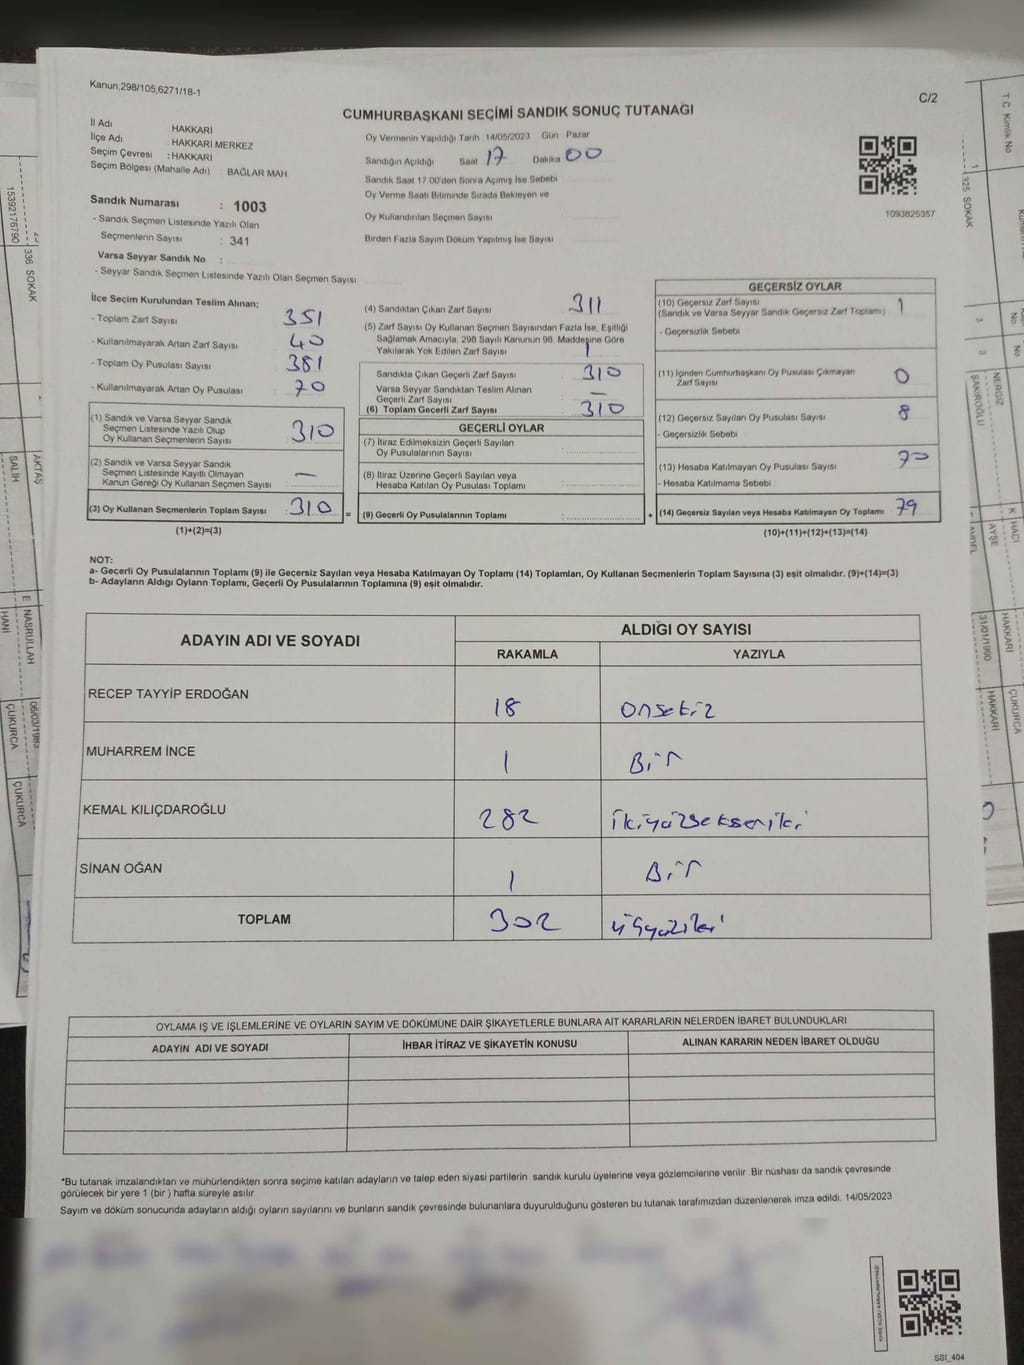 Kanun,298/105,6271/18-1
C/2
CUMHURBAŞKANI SEÇİMİ SANDIK SONUÇ TUTANAĞI
İl Adı : HAKKARİ
İlçe Adı : HAKKARİ MERKEZ
Seçim Çevresi : HAKKARİ
Seçim Bölgesi (Mahalle Adı) : BAĞLAR MAH
Oy Vermenin Yapıldığı Tarih 14/05/2023 Gün Pazar
Sandığın Açıldığı Saat 17 Dakika 00
Sandık Saat 17.00'den Sonra Açımış İse Sebebi
Oy Verme Saati Bitiminde Sırada Bekleyen ve
Oy Kullandırılan Seçmen Sayısı
Birden Fazla Sayım Döküm Yapılmış İse Sayısı
1093825357
Sandık Numarası : 1003
- Sandık Seçmen Listesinde Yazılı Olan
Seçmenlerin Sayısı : 341
Varsa Seyyar Sandık No :
- Seyyar Sandık Seçmen Listesinde Yazılı Olan Seçmen Sayısı
İlçe Seçim Kurulundan Teslim Alınan;
- Toplam Zarf Sayısı 351
- Kullanılmayarak Artan Zarf Sayısı 40
- Toplam Oy Pusulası Sayısı 381
- Kullanılmayarak Artan Oy Pusulası 70
(1) Sandık ve Varsa Seyyar Sandık
Seçmen Listesinde Yazılı Olup
Oy Kullanan Seçmenlerin Sayısı 310
(2) Sandık ve Varsa Seyyar Sandık
Seçmen Listesinde Kayıtlı Olmayan
Kanun Gereği Oy Kullanan Seçmen Sayısı : —
(3) Oy Kullanan Seçmenlerin Toplam Sayısı : 310
(1)+(2)=(3)
(4) Sandıktan Çıkan Zarf Sayısı 311
(5) Zarf Sayısı Oy Kullanan Seçmen Sayısından Fazla İse, Eşitliği
Sağlamak Amacıyla; 298 Sayılı Kanunun 98. Maddesine Göre
Yakılarak Yok Edilen Zarf Sayısı 1
Sandıkta Çıkan Geçerli Zarf Sayısı 310
Varsa Seyyar Sandıktan Teslim Alınan
Geçerli Zarf Sayısı —
(6) Toplam Gecerli Zarf Sayısı 310
GEÇERLİ OYLAR
(7) İtiraz Edilmeksizin Geçerli Sayılan
Oy Pusulalarının Sayısı
(8) İtiraz Üzerine Geçerli Sayılan veya
Hesaba Katılan Oy Pusulası Toplamı
= (9) Geçerli Oy Pusulalarının Toplamı
GEÇERSİZ OYLAR
(10) Geçersiz Zarf Sayısı 1
(Sandık ve Varsa Seyyar Sandık Geçersiz Zarf Toplamı)
- Geçersizlik Sebebi
(11) İçinden Cumhurbaşkanı Oy Pusulası Çıkmayan
Zarf Sayısı 0
(12) Geçersiz Sayılan Oy Pusulası Sayısı 8
- Geçersizlik Sebebi
(13) Hesaba Katılmayan Oy Pusulası Sayısı 70
- Hesaba Katılmama Sebebi
+ (14) Geçersiz Sayılan veya Hesaba Katılmayan Oy Toplamı 79
(10)+(11)+(12)+(13)=(14)
NOT:
a- Gecerli Oy Pusulalarının Toplamı (9) ile Gecersiz Sayılan veya Hesaba Katılmayan Oy Toplamı (14) Toplamları, Oy Kullanan Seçmenlerin Toplam Sayısına (3) eşit olmalıdır. (9)+(14)=(3)
b- Adayların Aldığı Oyların Toplamı, Geçerli Oy Pusulalarının Toplamına (9) eşit olmalıdır.
ADAYIN ADI VE SOYADI
ALDIĞI OY SAYISI
RAKAMLA YAZIYLA
RECEP TAYYİP ERDOĞAN 18 Onsekiz
MUHARREM İNCE 1 Bir
KEMAL KILIÇDAROĞLU 282 ikiyüzsekseniki
SİNAN OĞAN 1 Bir
TOPLAM 302 üçyüziki
OYLAMA İŞ VE İŞLEMLERİNE VE OYLARIN SAYIM VE DÖKÜMÜNE DAİR ŞİKAYETLERLE BUNLARA AİT KARARLARIN NELERDEN İBARET BULUNDUKLARI
ADAYIN ADI VE SOYADI İHBAR İTİRAZ VE ŞİKAYETİN KONUSU ALINAN KARARIN NEDEN İBARET OLDUĞU
*Bu tutanak imzalandıktan ve mühürlendikten sonra seçime katılan adayların ve talep eden siyasi partilerin sandık kurulu üyelerine veya gözlemcilerine verilir .Bir nüshası da sandık çevresinde
görülecek bir yere 1 (bir ) hafta süreyle asılır
Sayım ve döküm sonucunda adayların aldığı oyların sayılarını ve bunların sandık çevresinde bulunanlara duyurulduğunu gösteren bu tutanak tarafımızdan düzenlenerek imza edildi. 14/05/2023
SSİ_404
15392176790
336 SOKAK
AKTAŞ
SALİH
E NASRULLAH
HANİ
06/03/1983
ÇUKURCA
ÇUKURCA
T.C. Kimlik No
1
325 SOKAK
No
No
NERGİZ
ŞAKİROĞLU
K HACI
AYŞE
HAKKARİ
31/01/1990
ÇUKURCA
HAKKARİ